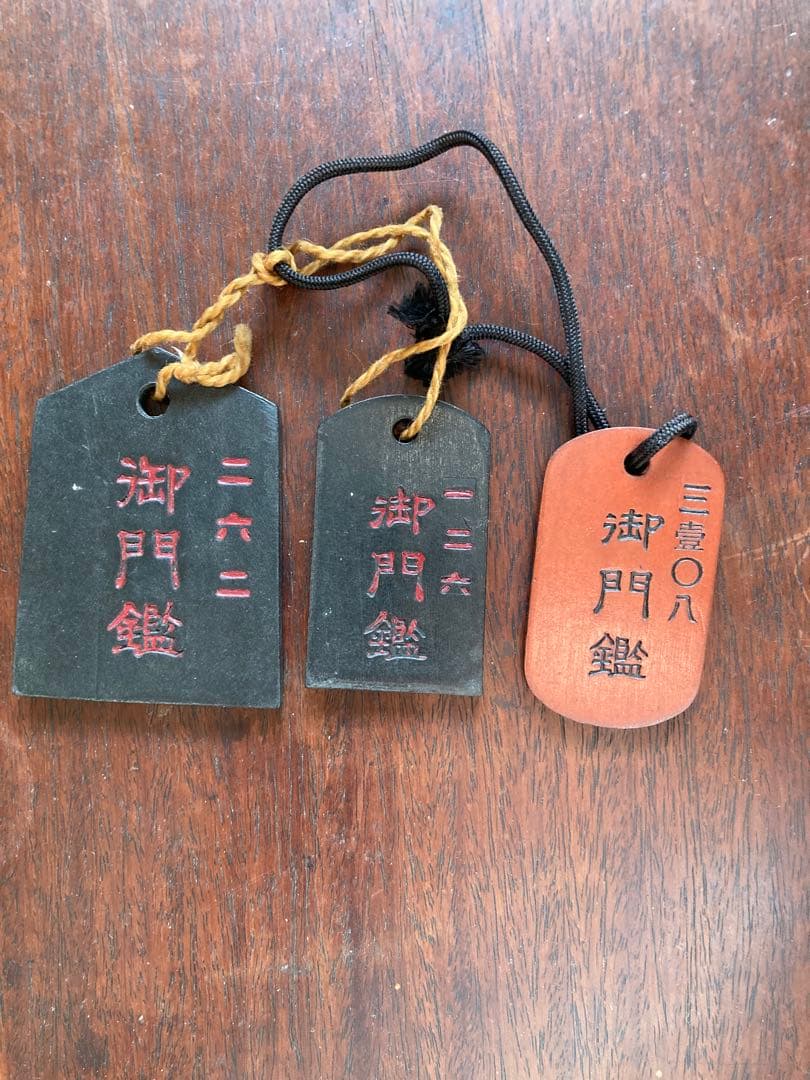 二六二
御門鑑
一二六
御門鑑
三壹〇八
御門鑑